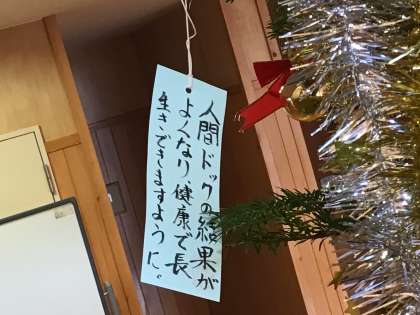 人間ドックの結果が
よくなり、健康で長
生きできますように。